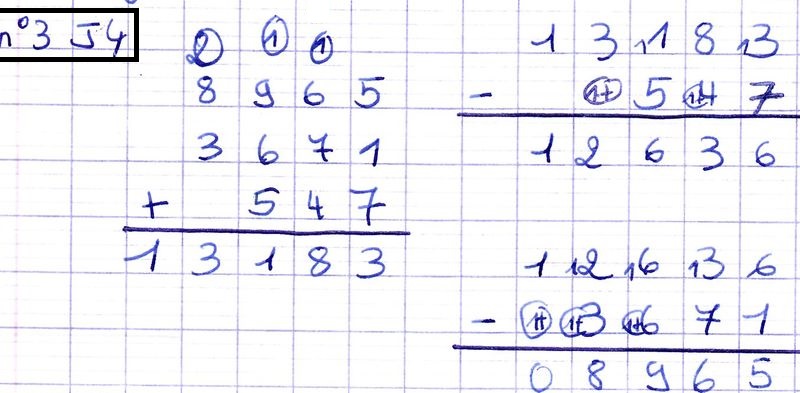 n°3 J4
2 1 1
8 9 6 5
3 6 7 1
+ 5 4 7
1 3 1 8 3
1 3 11 8 13
- 1+ 5 1+4 7
1 2 6 3 6
1 12 16 13 6
- 1+ 1+3 1+6 7 1
0 8 9 6 5